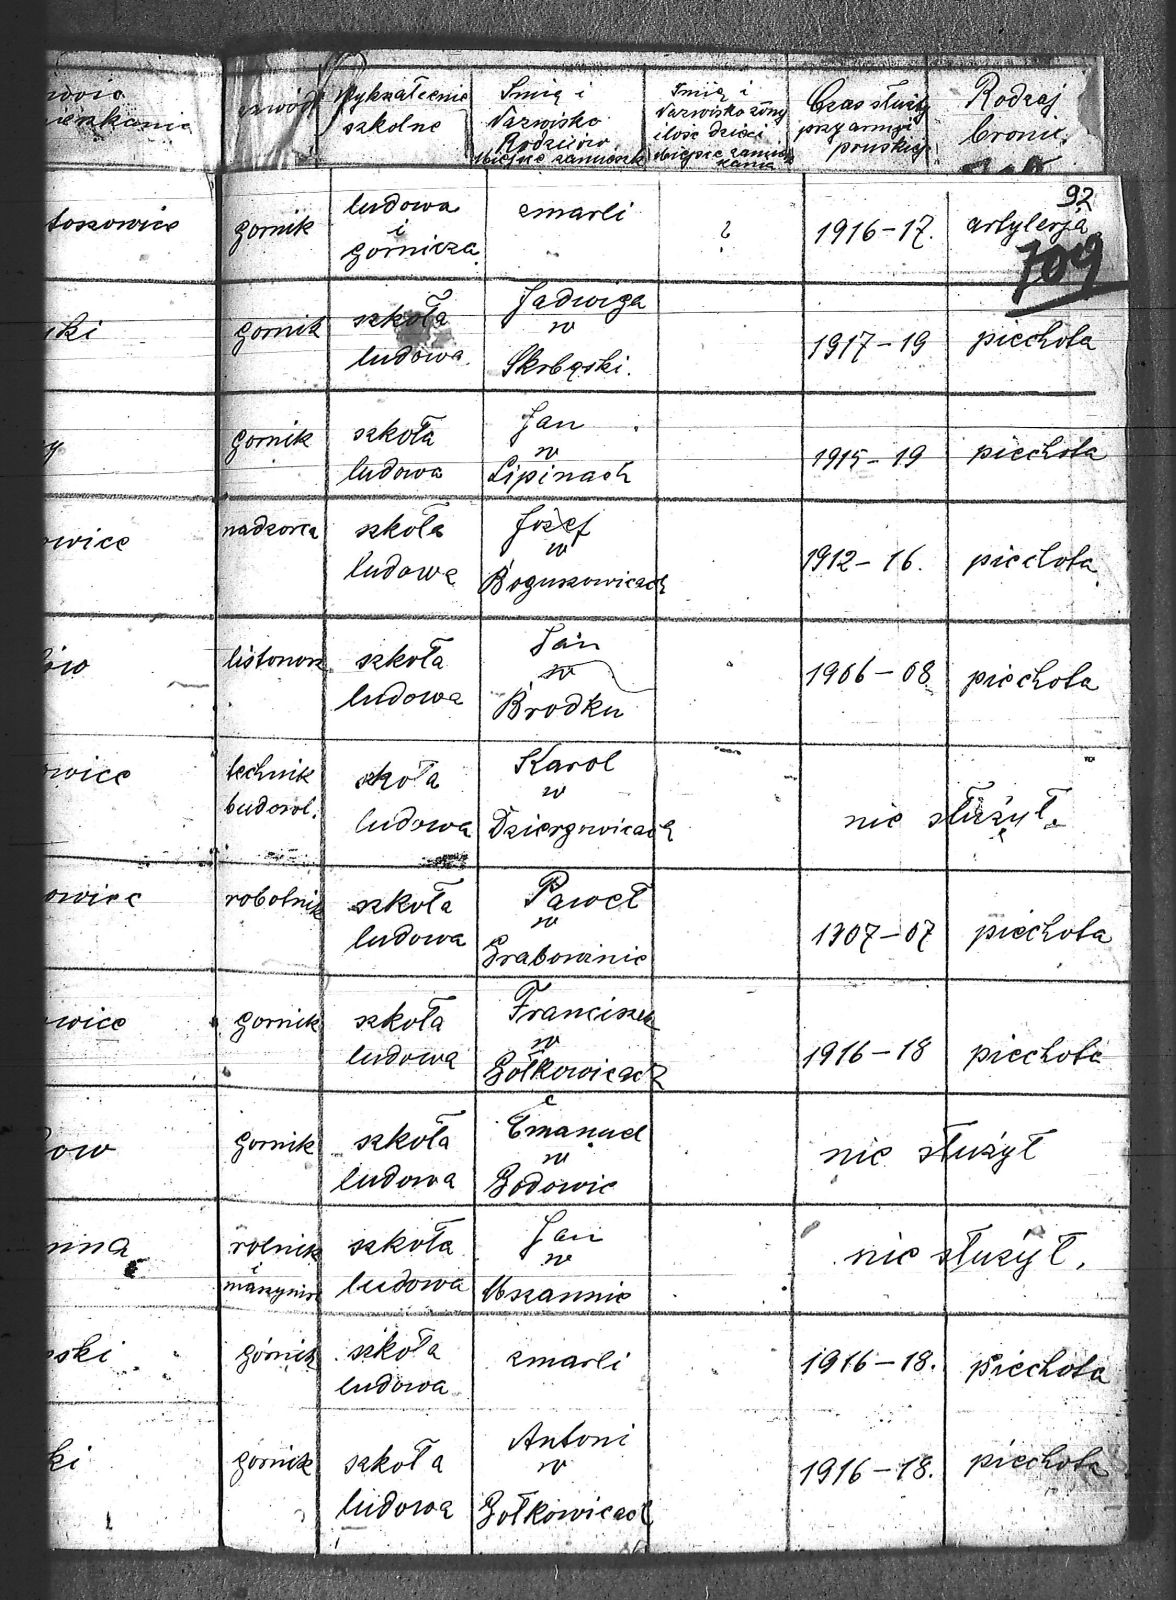 Wykształcenie
szkolne
Imię i
Nazwisko
Rodziców
Miejsce zamieszk
Imię i
Nazwisko żony
ilość dzieci
Miejsce zamiesz
kania
Czas służby
przy armji
pruskiej
Rodzaj
broni.
92
709
górnik
ludowa
i
górnicza
zmarli
?
1916-17.
artylerja
ski
gornik
szkoła
ludowa
Jadwiga
w
Skrbęski.
1917-19
piechota
y
gornik
szkoła
ludowa
Jan
w
Lipinach
1915-19
piechota
owice
nadzorca
szkoła
ludowa
Józef
w
Boguszowicach
1912-16.
piechota
ów
listonosz
szkoła
ludowa
Jan
w
Brodku
1906-08
piechota
owice
technik
budowl.
szkoła
ludowa
Karol
w
Dziergowicach
nie służył.
owice
robotnik
szkoła
ludowa
Paweł
w
Grabowinie
1907-07
piechota
owice
gornik
szkoła
ludowa
Franciszek
w
Gołkowicach
1916-18
piechota
ow
gornik
szkoła
ludowa
Emanuel
w
Godowie
nie służył
nna
rolnik
i
maszynist
szkoła
ludowa
Jan
w
Mszannie
nie służył.
ski
górnik
szkoła
ludowa
zmarli
1916-18.
piechota
ki
górnik
szkoła
ludowa
Antoni
w
Gołkowicach
1916-18.
piechota